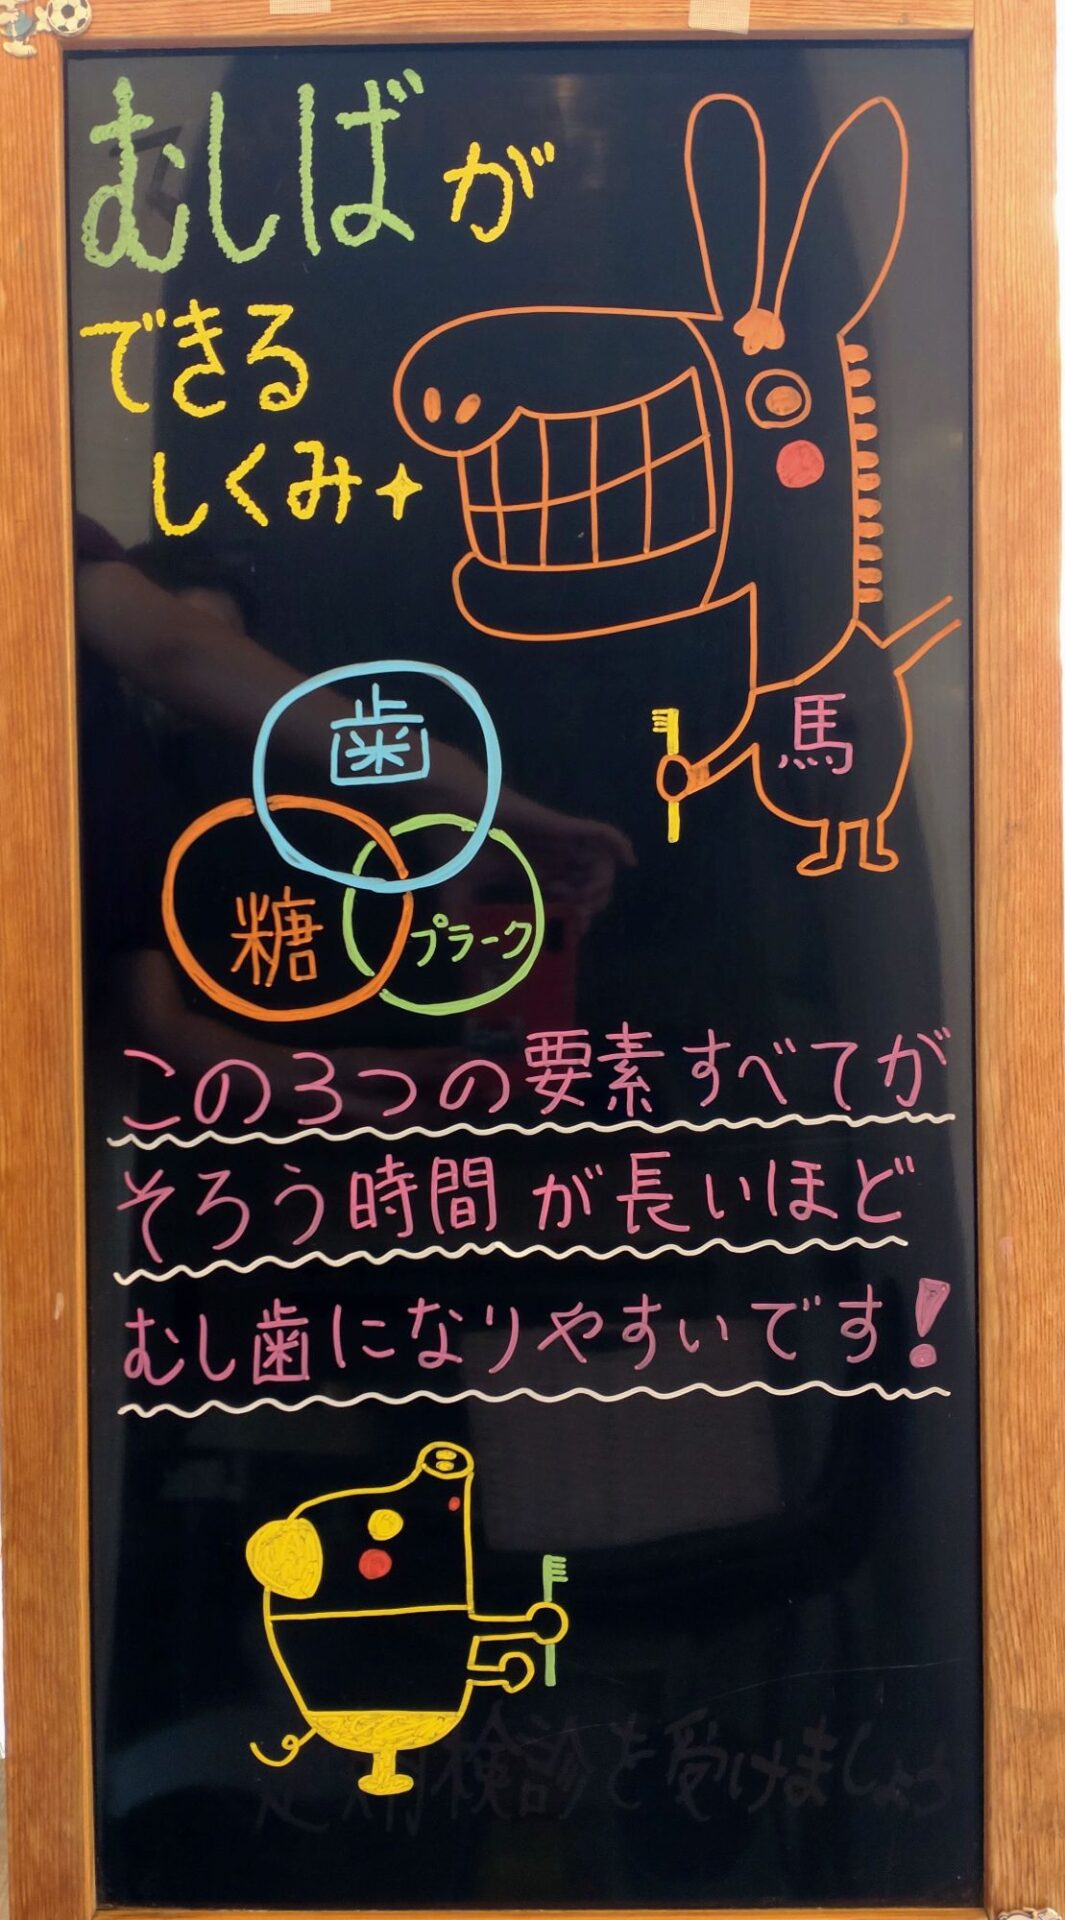 むしばが
できる
しくみ
馬
歯
糖
プラーク
この3つの要素すべてが
そろう時間が長いほど
むし歯になりやすいです!
検診を受けましょう